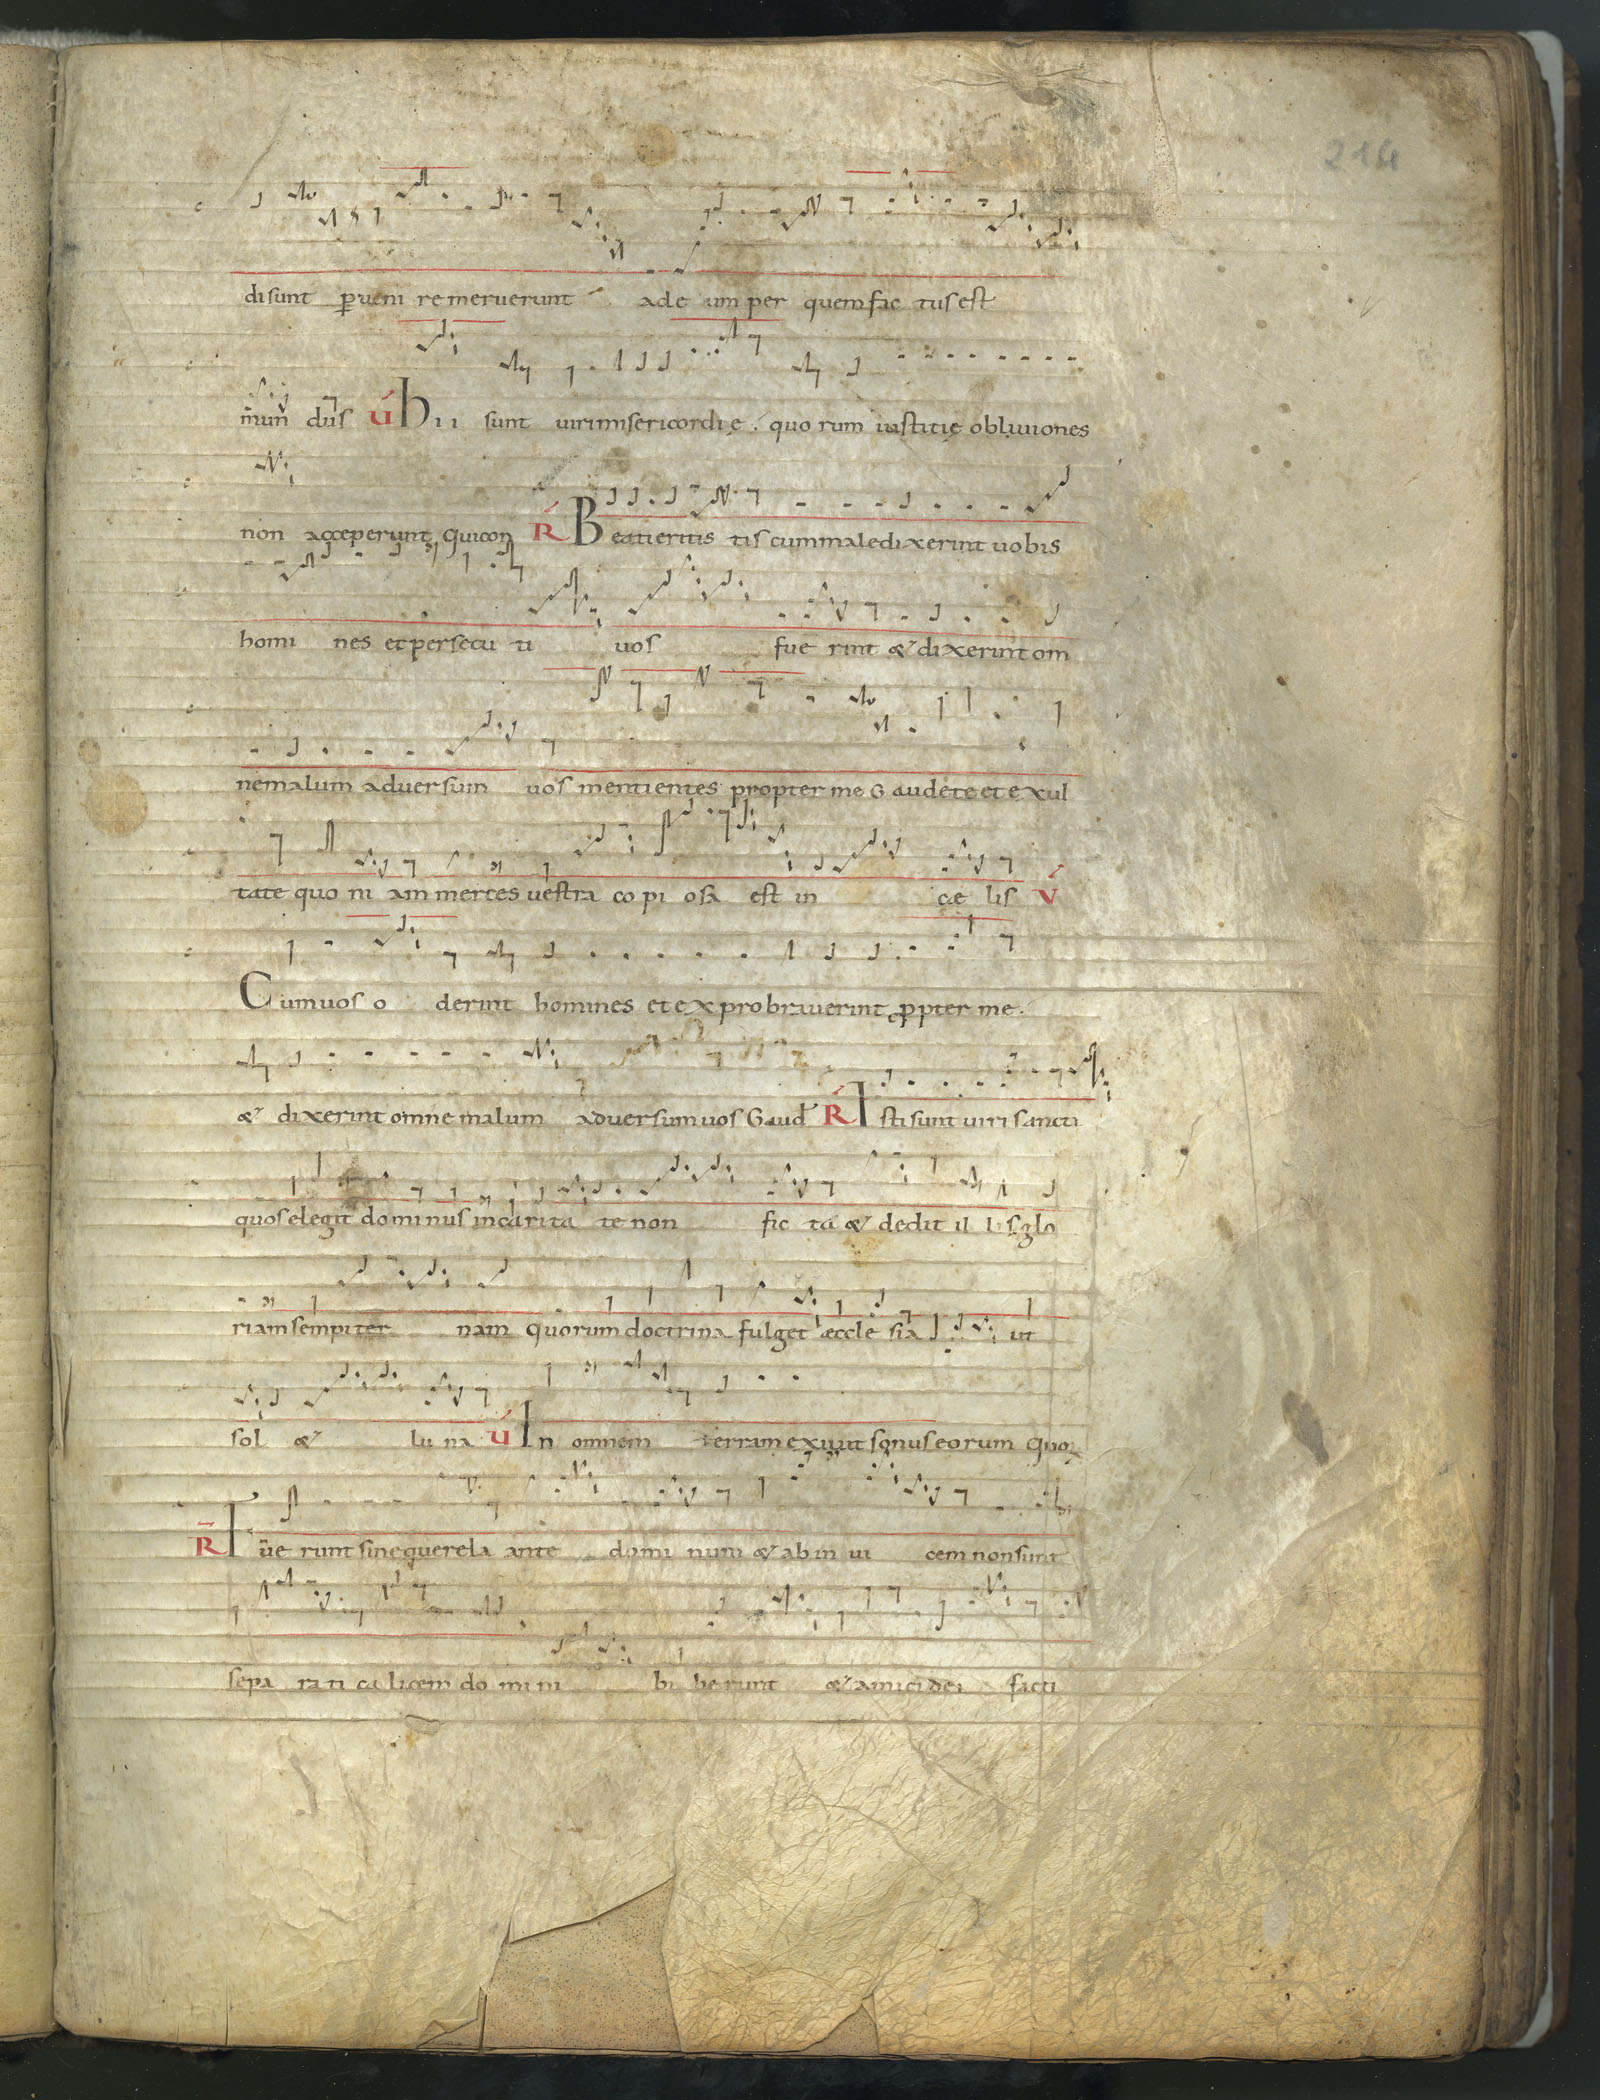 214
di sunt ꝑ ueni re meruerunt ad e um per quem fac tus est
mun dus V́ Hii sunt uiri misericordię. quo rum iustitię obliuiones
non acceperunt Qui con Ŕ Beati eritis tis cum maledixerint uobis
homi nes et persecu ti uos fue rint & dixerint om
ne malum aduersum uos mentientes propter me Gaudete et exul
tate quo ni am merces uestra co pi osa est in cæ lis V́
Cum uos o derint homines et exprobrauerint ꝓpter me.
& dixerint omne malum aduersum uos Gaud Ŕ Isti sunt uiri sancti
quos elegit dominus in carita te non fic ta & dedit il lis glo
riam sempiter nam quorum doctrina fulget æccle sia ut
sol & lu na V́ In omnem terram exiuit sonus eorum Quoꝝ
Ŕ Tü e runt sine querela ante domi num & ab in ui cem non sunt
sepa ra ti calicem do mi ni bi be runt & amici dei facti